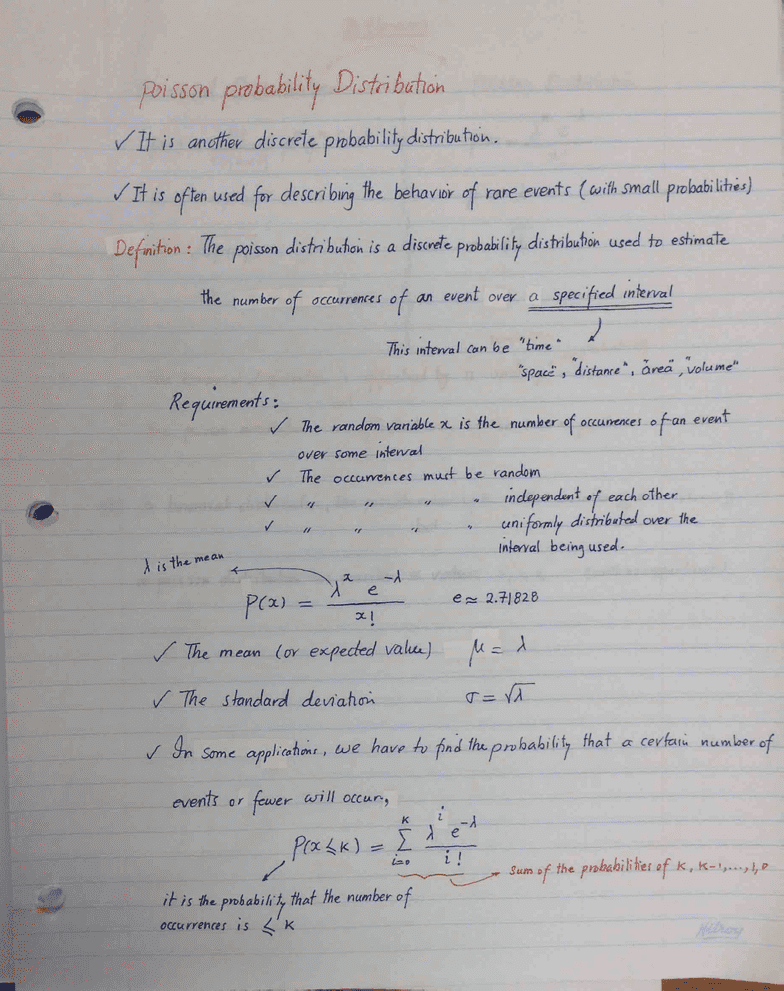 poisson probability Distribution
✓ It is another discrete probability distribution.
✓ It is often used for describing the behavior of rare events (with small probabilities)
Definition : The poisson distribution is a discrete probability distribution used to estimate
the number of occurrences of an event over a specified interval
This interval can be "time"
"space", "distance", "area", "volume"
Requirements :
✓ The random variable x is the number of occurrences of an event
over some interval
✓ The occurrences must be random
✓ " " " " independent of each other
✓ " " " " uniformly distributed over the
interval being used.
λ is the mean
P(x) = λ^x e^-λ / x!    e ≈ 2.71828
✓ The mean (or expected value)    μ = λ
✓ The standard deviation    σ = √λ
✓ In some applications, we have to find the probability that a certain number of
events or fewer will occur,
P(x ≤ K) = Σ_{i=0}^{K} λ^i e^-λ / i!
sum of the probabilities of K, K-1, ..., 1, 0
it is the probability that the number of
occurrences is ≤ K
Hilroy